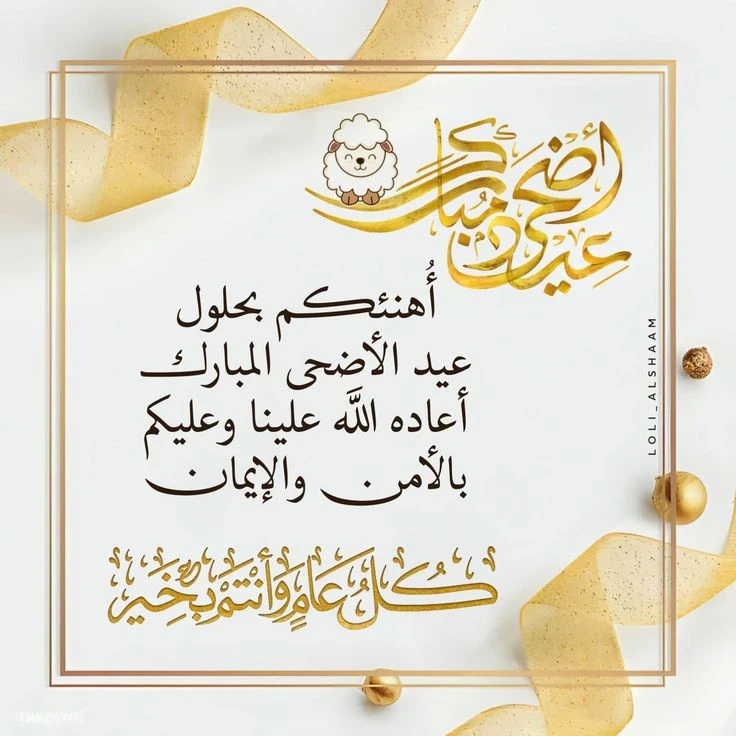 عيد أضحى مبارك
أُهنئكم بحلول
عيد الأضحى المبارك
أعاده اللَّه علينا وعليكم
بالأمن والإيمان
كُلُّ عَامٍ وَأَنْتُمْ بِخَيْرٍ
LOLI_ALSHAAM